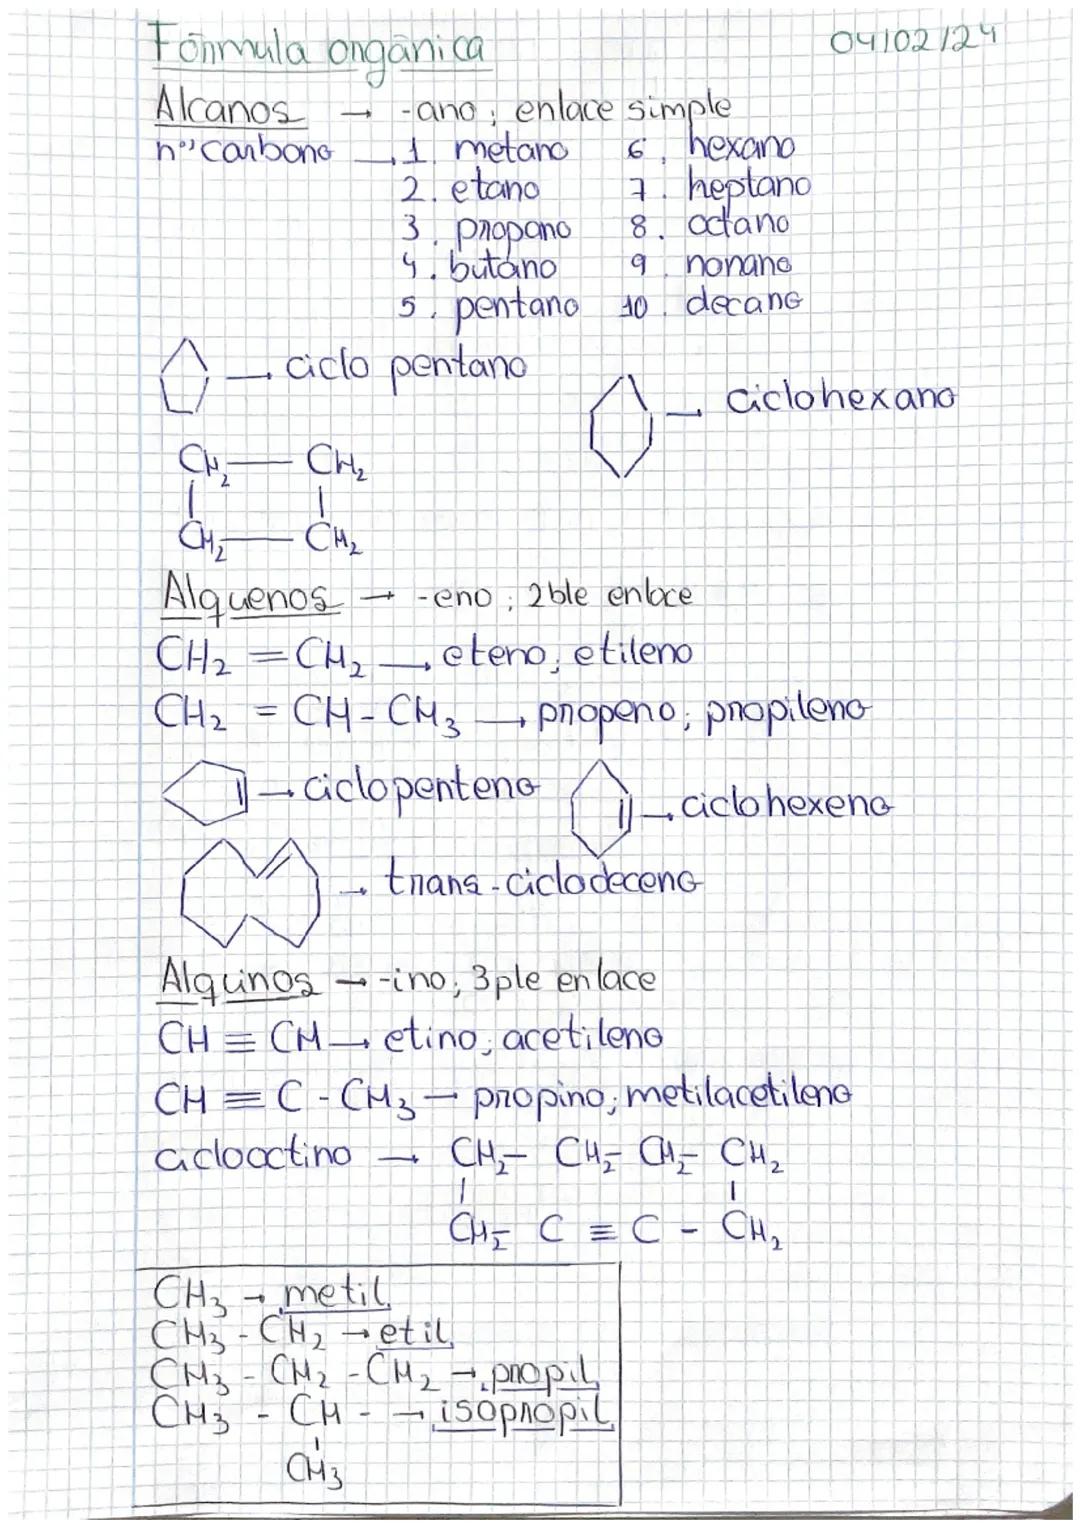 Fórmula orgánica 04/02/24
Alcanos → -ano; enlace simple
nº carbono → 1. metano 6. hexano
2. etano 7. heptano
3. propano 8. octano
4. butano 9. nonano
5. pentano 10. decano
→ ciclo pentano
→ ciclohexano
CH₂ — CH₂
| |
CH₂ — CH₂
Alquenos → -eno; 2ble enlace
CH₂ = CH₂ → eteno; etileno
CH₂ = CH - CH₃ → propeno; propileno
→ ciclopenteno → ciclohexeno
→ trans-ciclodeceno
Alquinos → -ino; 3ple enlace
CH ≡ CH → etino; acetileno
CH ≡ C - CH₃ → propino; metilacetileno
ciclooctino → CH₂ - CH₂ - CH₂ - CH₂
| |
CH₂ - C ≡ C - CH₂
CH₃ → metil
CH₃ - CH₂ → etil
CH₃ - CH₂ - CH₂ → propil
CH₃ - CH - → isopropil
|
CH₃